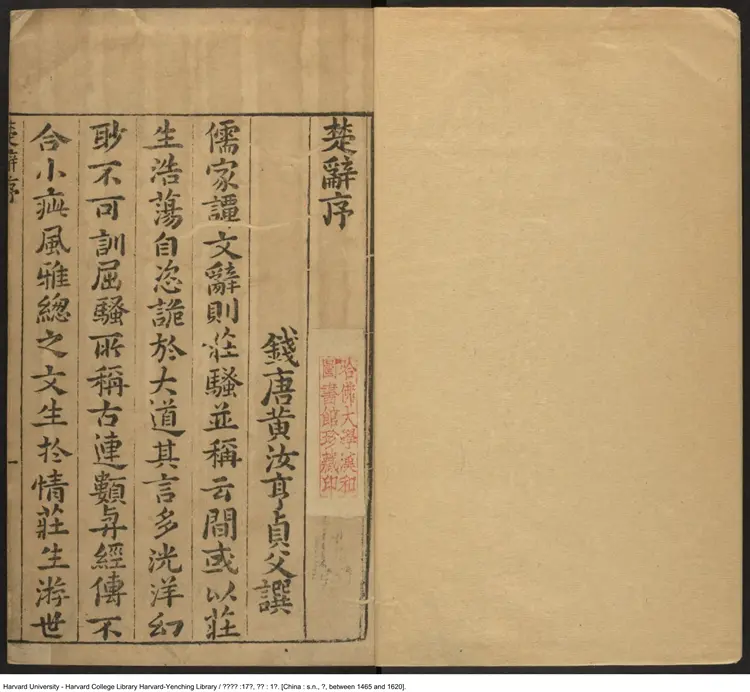 楚辭序
哈佛大學漢和
圖書館珍藏印
錢唐黃汝亨貞父譔
儒家譚文辭則莊騷並稱云間或以莊
生浩蕩自恣詭於大道其言多洸洋幻
眇不可訓屈騷所稱古連類與經傳不
合小疵風雅總之文生於情莊生游世
楚辭序
一
Harvard University - Harvard College Library Harvard-Yenching Library / ???? :17?, ?? : 1?. [China : s.n., ?, between 1465 and 1620].